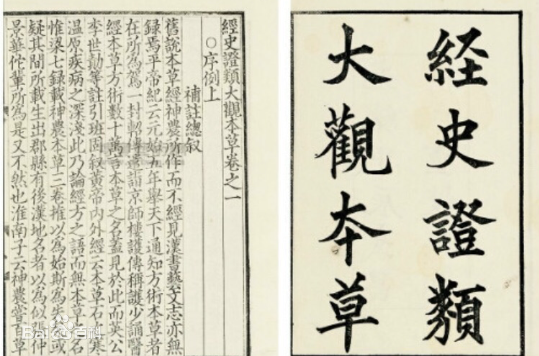 経史證類
大觀本草
經史證類大觀本草卷之一
〇序例上
補註總叙
舊說本草經神農所作而不經見漢書藝文志亦無
録焉平帝紀云元始五年舉天下通知方術本草者
在所爲駕一封軺傳遣詣京師樓護傳稱護少誦醫
經本草方術數十萬言本草之名蓋見於此而英公
李世勣等註引班固叙黃帝内外經云本草石之寒
温原疾病之深淺此乃論經方之語而無本草之名
惟梁七録載神農本草三卷推以爲始斯爲失矣或
疑其間所載生出郡縣有後漢地名者以爲似張仲
景華佗輩所爲是又不然也淮南子云神農嘗百草
Baidu百科